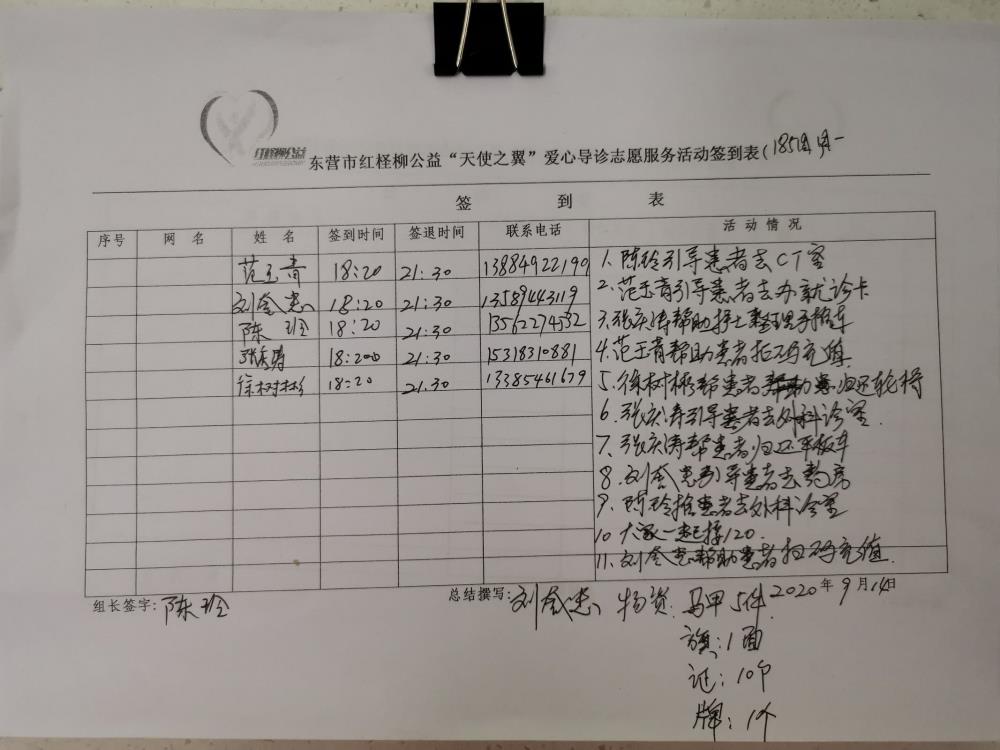 红柽柳公益
东营市红柽柳公益“天使之翼”爱心导诊志愿服务活动签到表(185周周一
签 到 表
序号 网 名 姓 名 签到时间 签退时间 联系电话 活 动 情 况
范玉青 18:20 21:30 13884922190
刘金惠 18:20 21:30 13589443119
陈 玲 18:20 21:30 13562274532
张庆涛 18:20 21:30 15318310881
徐树彬 18:20 21.30 13385461679
1.陈玲引导患者去CT室
2.范玉青引导患者去办就诊卡
3.张庆涛帮助护士整理平推车
4.范玉青帮助患者扫码充值
5.徐树彬帮患者归还轮椅
6.张庆涛引导患者去外科诊室.
7.张庆涛帮患者归还平板车
8.刘金惠引导患者去药房
9.陈玲推患者去外科诊室
10 大家一起接120.
11.刘金惠帮助患者扫码充值.
组长签字:陈玲 总结撰写:刘金惠 物资: 马甲5件 2020年9月14日
旗:1面
证:10个
牌:1个